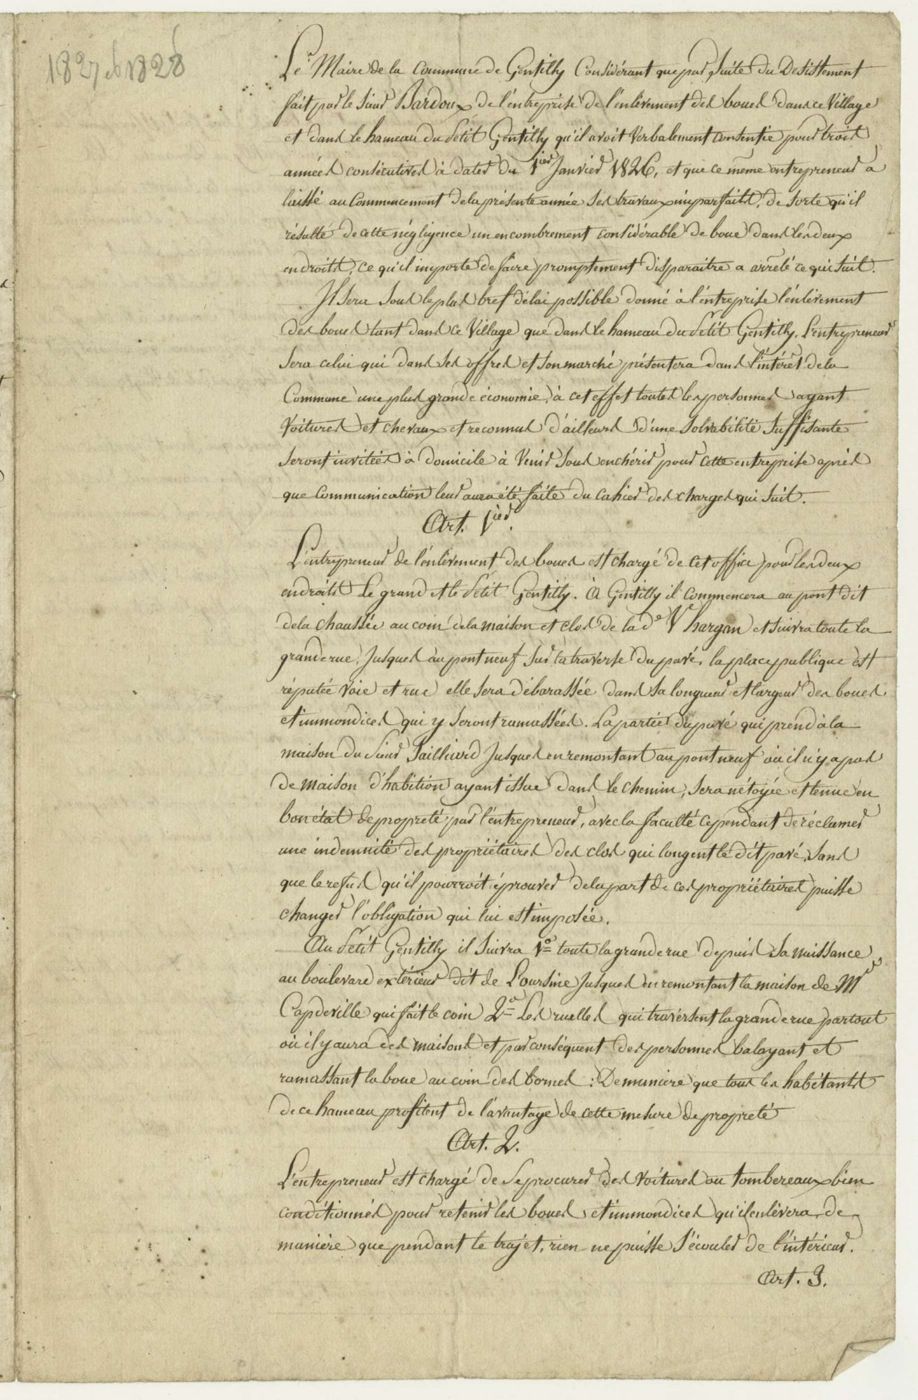 1827 et 1828
Le Maire de la Commune de Gentilly Considérant que par suite du Désistement
fait par le sieur Bardoux de l'entreprise de l'enlèvement des boues dans ce Village
et dans le hameau du Petit Gentilly qu'il avoit Verbalement consentie pour trois
années consécutives à dater du 1ier Janvier 1826, et que ce même entrepreneur a
laissé au Commencement de la présente année ses travaux imparfaits, de sorte qu'il
résulte de cette négligence un encombrement considérable de boue dans les deux
endroits, ce qu'il importe de faire promptement disparaitre a arrêté ce qui suit.
Il sera sous le plus bref délai possible donné à l'entreprise l'enlèvement
des boues tant dans ce Village que dans le hameau du Petit Gentilly. L'entrepreneur
sera celui qui dans ses offres et son marché présentera dans l'intérêt de la
Commune une plus grande économie, à cet effet toutes les personnes ayant
Voitures et chevaux et reconnus d'ailleurs d'une solvabilité suffisante
seront invitées à domicile à Venir sous enchérir pour cette entreprise après
que communication leur aura été faite du cahier des charges qui suit.
Art. 1ier.
L'entrepreneur de l'enlèvement des boues est chargé de cet office pour les deux
endroits Le grand et le Petit Gentilly. A Gentilly il commencera au pont dit
de la chaussée au coin de la maison et clos de la de Ve hargan et suivra toute la
grande rue, Jusques au pont neuf sur la traverse du pavé, la place publique est
réputée voie et rue elle sera débarassée dans sa longueur et largeur des boues
et immondices qui y seront ramassées. La partie du pavé qui prend à la
maison du sieur Sailliard Jusques en remontant au pont neuf où il n'y a pas
de maison d'habition ayant issue dans le chemin, sera nétoyée et tenue en
bon état de propreté par l'entrepreneur, avec la faculté cependant de réclamer
une indemnité des propriétaires des clos qui longent le dit pavé, sans
que le refus qu'il pourroit éprouver de la part de ces propriétaires puisse
changer l'obligation qui lui est imposée.
Au Petit Gentilly il suivra 1° toute la grande rue depuis sa naissance
au boulevard extérieur dit de Loursine Jusques en remontant la maison de Mr
Capdeville qui fait le coin 2° Les ruelles qui traversent la grande rue partout
où il y aura des maisons et par conséquent des personnes balayant et
ramassant la boue au coin des bornes : De manière que tous les habitants
de ce hameau profitent de l'avantage de cette mesure de propreté
Art. 2.
L'entrepreneur est chargé de se procurer des voitures ou tombereaux bien
conditionnés pour retenir les boues et immondices qu'il enlèvera, de
manière que pendant le trajet, rien ne puisse s'écouler de l'intérieur.
Art. 3.